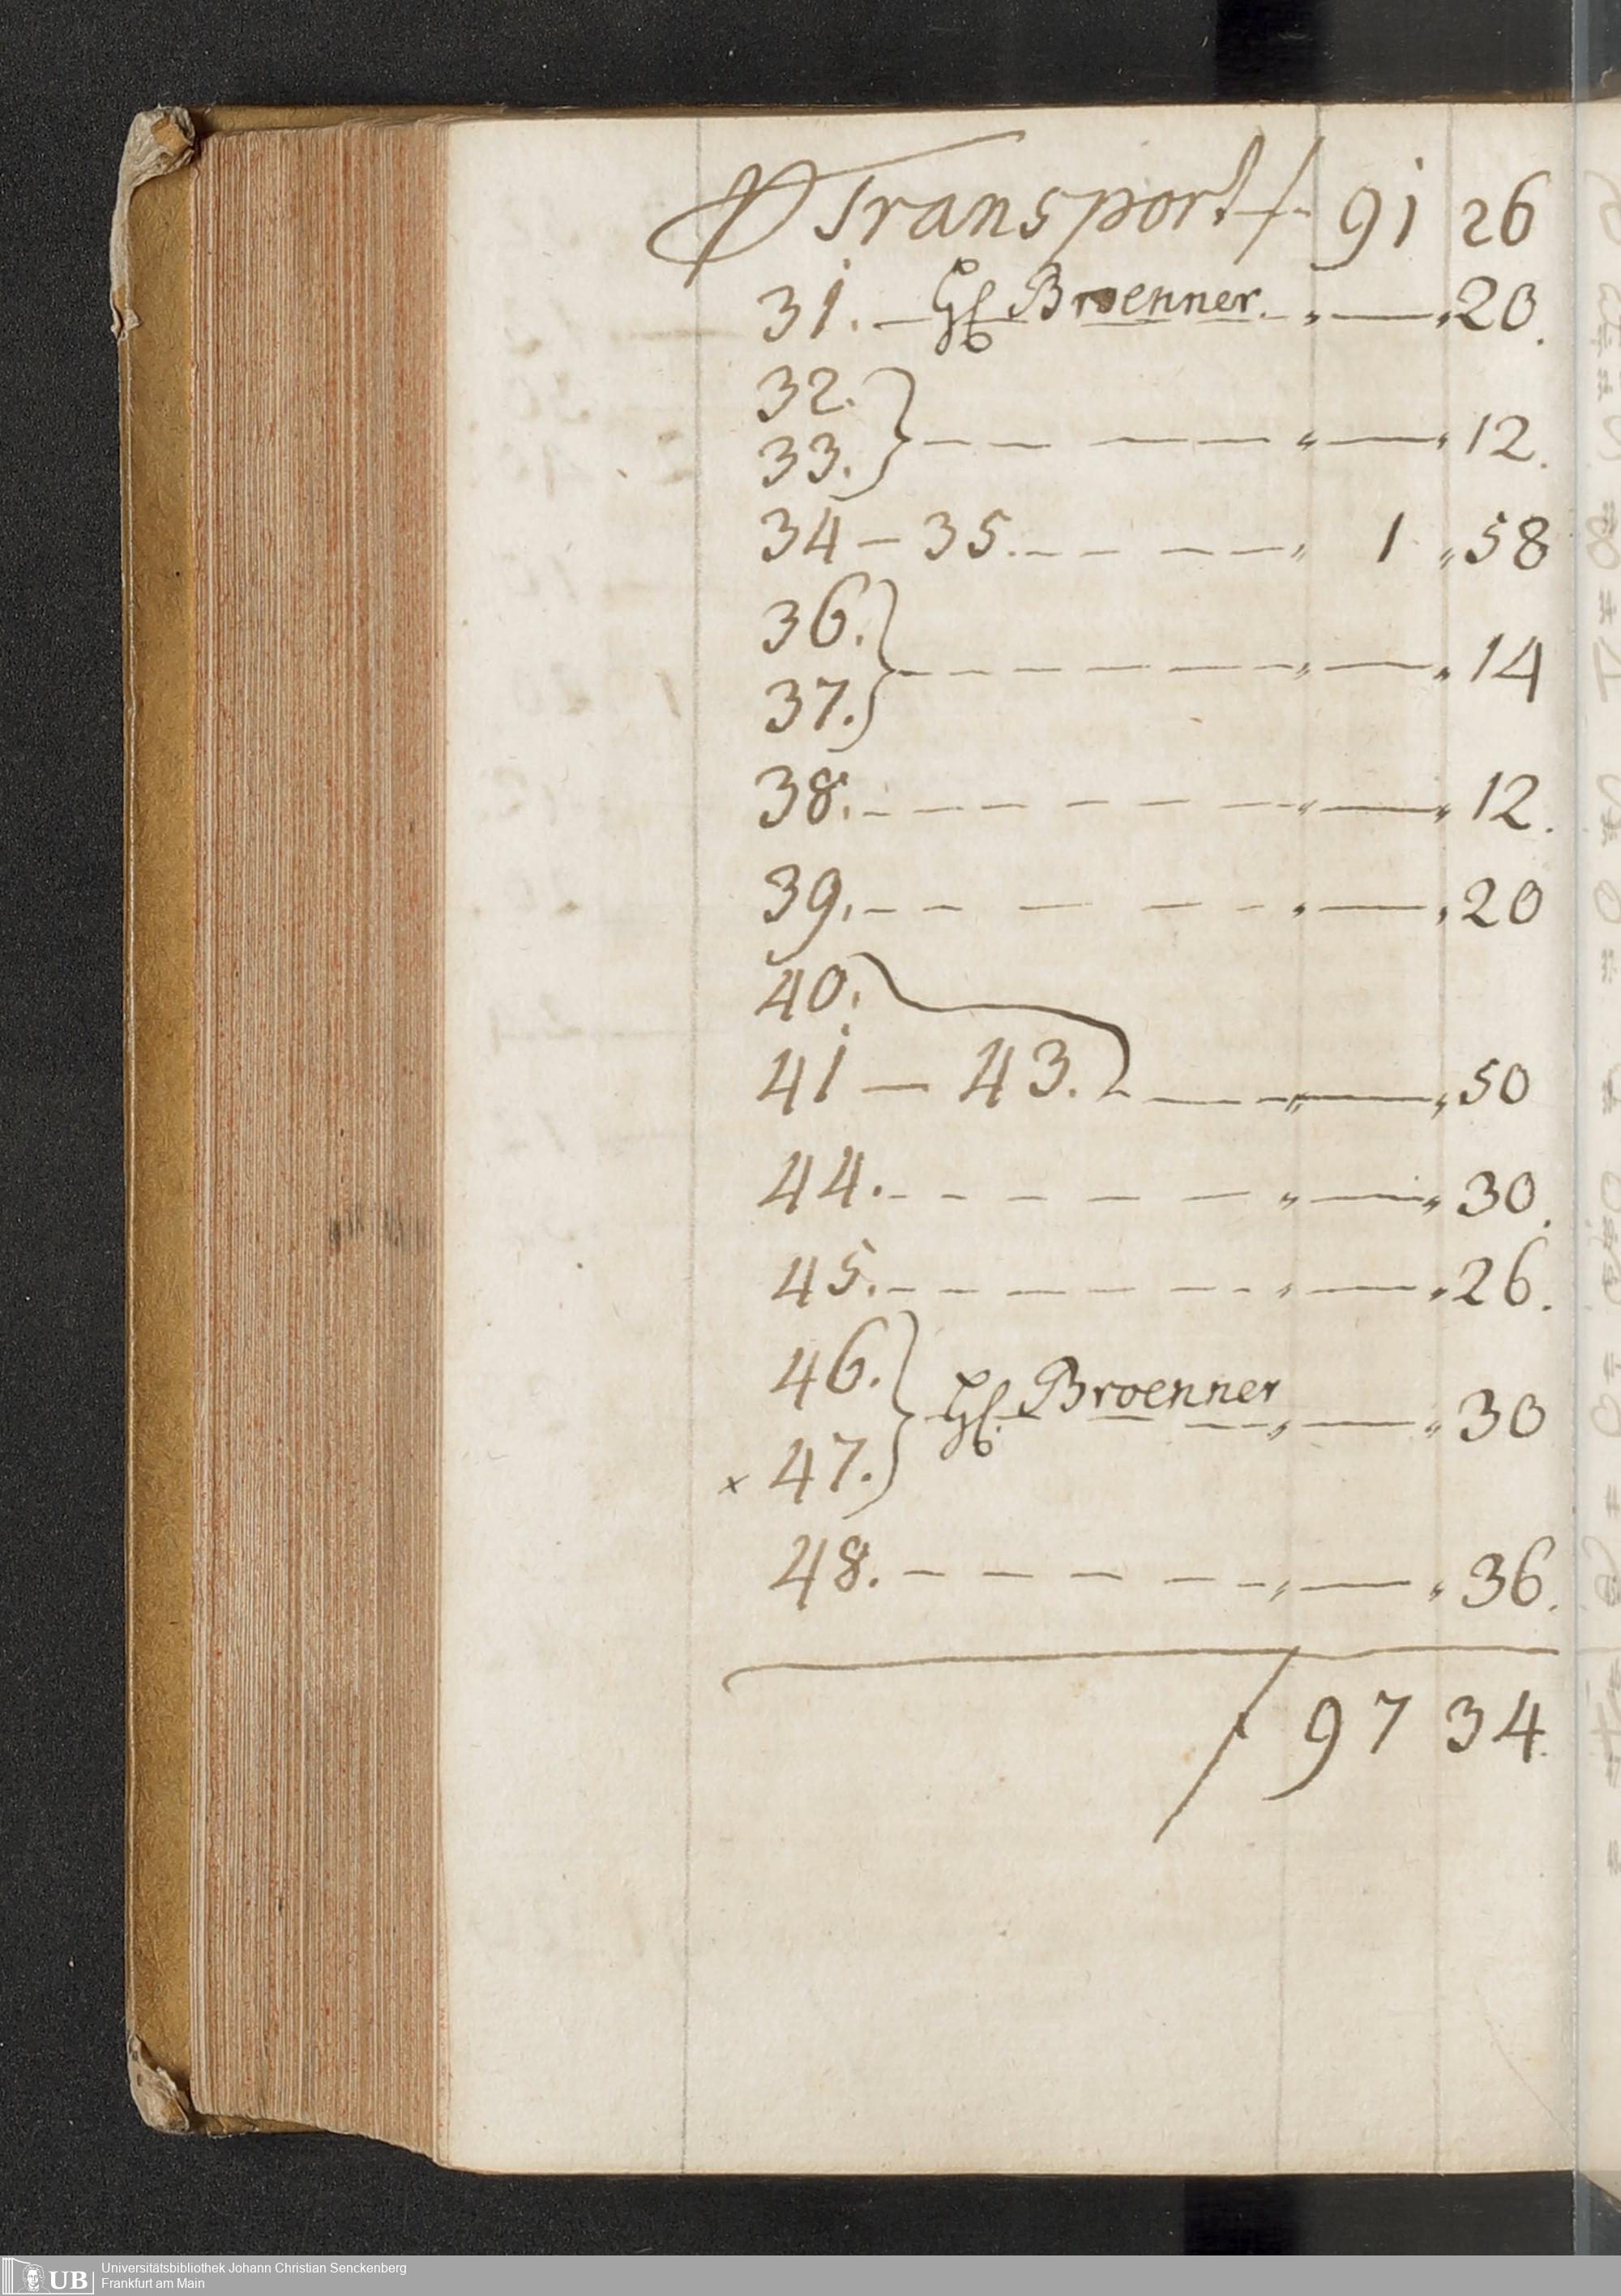 Transport f 91 26
31. — H. Broenner. " — " 20.
32.
33. } — — — — " — " 12.
34 — 35. — — — — " 1 " 58
36.
37. } — — — — — " — " 14
38. — — — — — — " — " 12.
39. — — — — — " — " 20
40.
41 — 43. — — " — " 50
44. — — — — — " — " 30.
45. — — — — — — " — " 26.
46.
} H. Broenner — " — " 30
x 47.
48. — — — — — " — " 36.
f 97 34.
UB Universitätsbibliothek Johann Christian Senckenberg
Frankfurt am Main